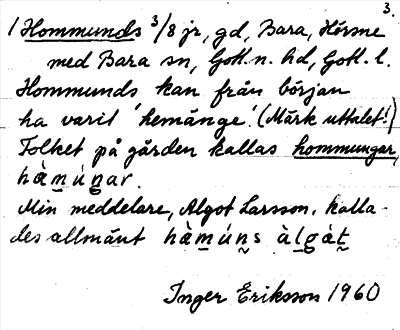 3.
1 Hommunds 3/8 jr, gd, Bara, Hörsne
med Bara sn, Gotl. n. hd, Gotl. l.
Hommunds kan från början
ha varit 'hemänge'. (Märk uttalet!)
Folket på gården kallas hommungar,
hàm̲ún̲ar.
Min meddelare, Algot Larsson, kalla-
des allmänt hàm̲ún̰s àl̲g̲àt̰
Inger Eriksson 1960